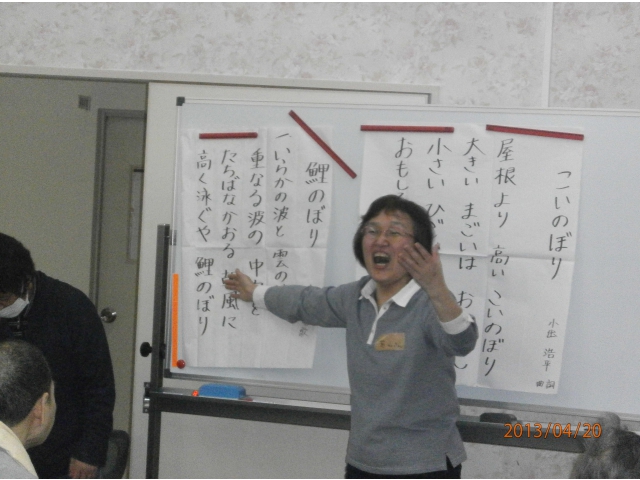 こいのぼり
小出 浩平 詞
曲
屋根より 高い こいのぼり
大きい まごいは お
小さい ひご
おもし
鯉のぼり
いらかの波と 雲の
重なる波の 中
たちばなかおる 風に
高く泳ぐや 鯉のぼり
2013/04/20